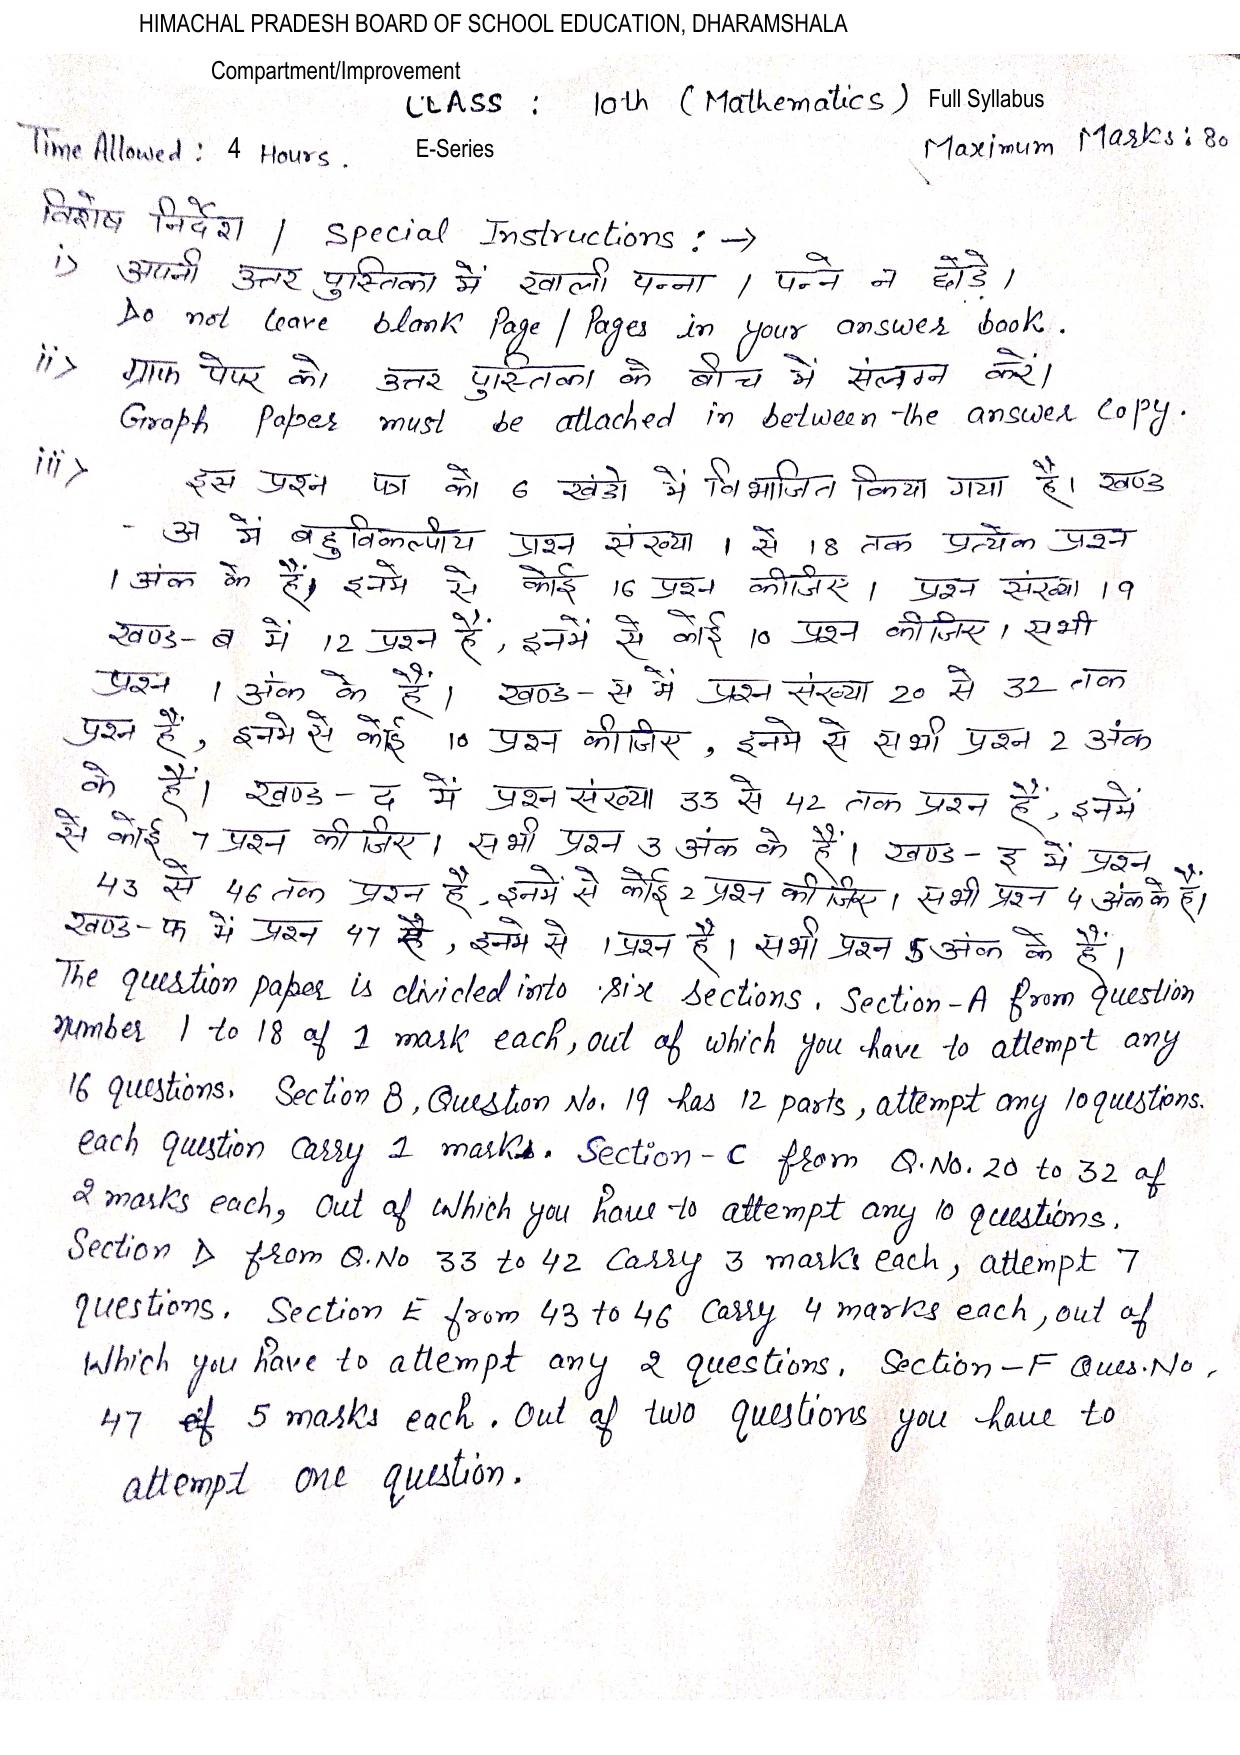 HIMACHAL PRADESH BOARD OF SCHOOL EDUCATION, DHARAMSHALA
Compartment/Improvement
CLASS : 10th (Mathematics) Full Syllabus
Time Allowed : 4 Hours. E-Series Maximum Marks : 80
विशेष निर्देश / Special Instructions : →
i) अपनी उत्तर पुस्तिका में खाली पन्ना / पन्ने न छोड़े।
Do not leave blank Page / Pages in your answer book.
ii) ग्राफ पेपर को उत्तर पुस्तिका के बीच में संलग्न करें।
Graph Paper must be attached in between the answer copy.
iii) इस प्रश्न पत्र को 6 खंडो में विभाजित किया गया है। खण्ड
- अ में बहुविकल्पीय प्रश्न संख्या 1 से 18 तक प्रत्येक प्रश्न
1 अंक के हैं। इनमे से कोई 16 प्रश्न कीजिए। प्रश्न संख्या 19
खण्ड- ब में 12 प्रश्न हैं, इनमें से कोई 10 प्रश्न कीजिए। सभी
प्रश्न 1 अंक के हैं। खण्ड- स में प्रश्न संख्या 20 से 32 तक
प्रश्न हैं, इनमे से कोई 10 प्रश्न कीजिए, इनमे से सभी प्रश्न 2 अंक
के हैं। खण्ड - द में प्रश्न संख्या 33 से 42 तक प्रश्न हैं, इनमें
से कोई 7 प्रश्न कीजिए। सभी प्रश्न 3 अंक के हैं। खण्ड- इ में प्रश्न
43 से 46 तक प्रश्न है, इनमें से कोई 2 प्रश्न कीजिए। सभी प्रश्न 4 अंक के हैं।
खण्ड- फ में प्रश्न 47 है, इनमे से 1 प्रश्न है। सभी प्रश्न 5 अंक के हैं।
The question paper is divided into six sections. Section-A from question
number 1 to 18 of 1 mark each, out of which you have to attempt any
16 questions. Section B, Question No. 19 has 12 parts, attempt any 10 questions.
each question carry 1 marks. Section - C from Q.No. 20 to 32 of
2 marks each, Out of which you have to attempt any 10 questions.
Section D from Q.No 33 to 42 Carry 3 marks each, attempt 7
questions. Section E from 43 to 46 Carry 4 marks each, out of
Which you have to attempt any 2 questions. Section-F Ques.No.
47 of 5 marks each. Out of two questions you have to
attempt one question.